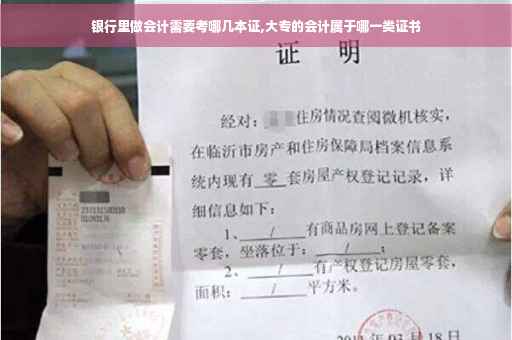 银行里做会计需要考哪几本证,大专的会计属于哪一类证书
证 明
经对: 住房情况查阅微机核实,
在临沂市房产和住房保障局档案信息系
统内现有 零 套房屋产权登记记录,详
细信息如下:
1、 / 有商品房网上登记备案
零套,坐落位于: / ;
2、 / 有产权登记房屋零套,
面积: / 平方米。
03月18日